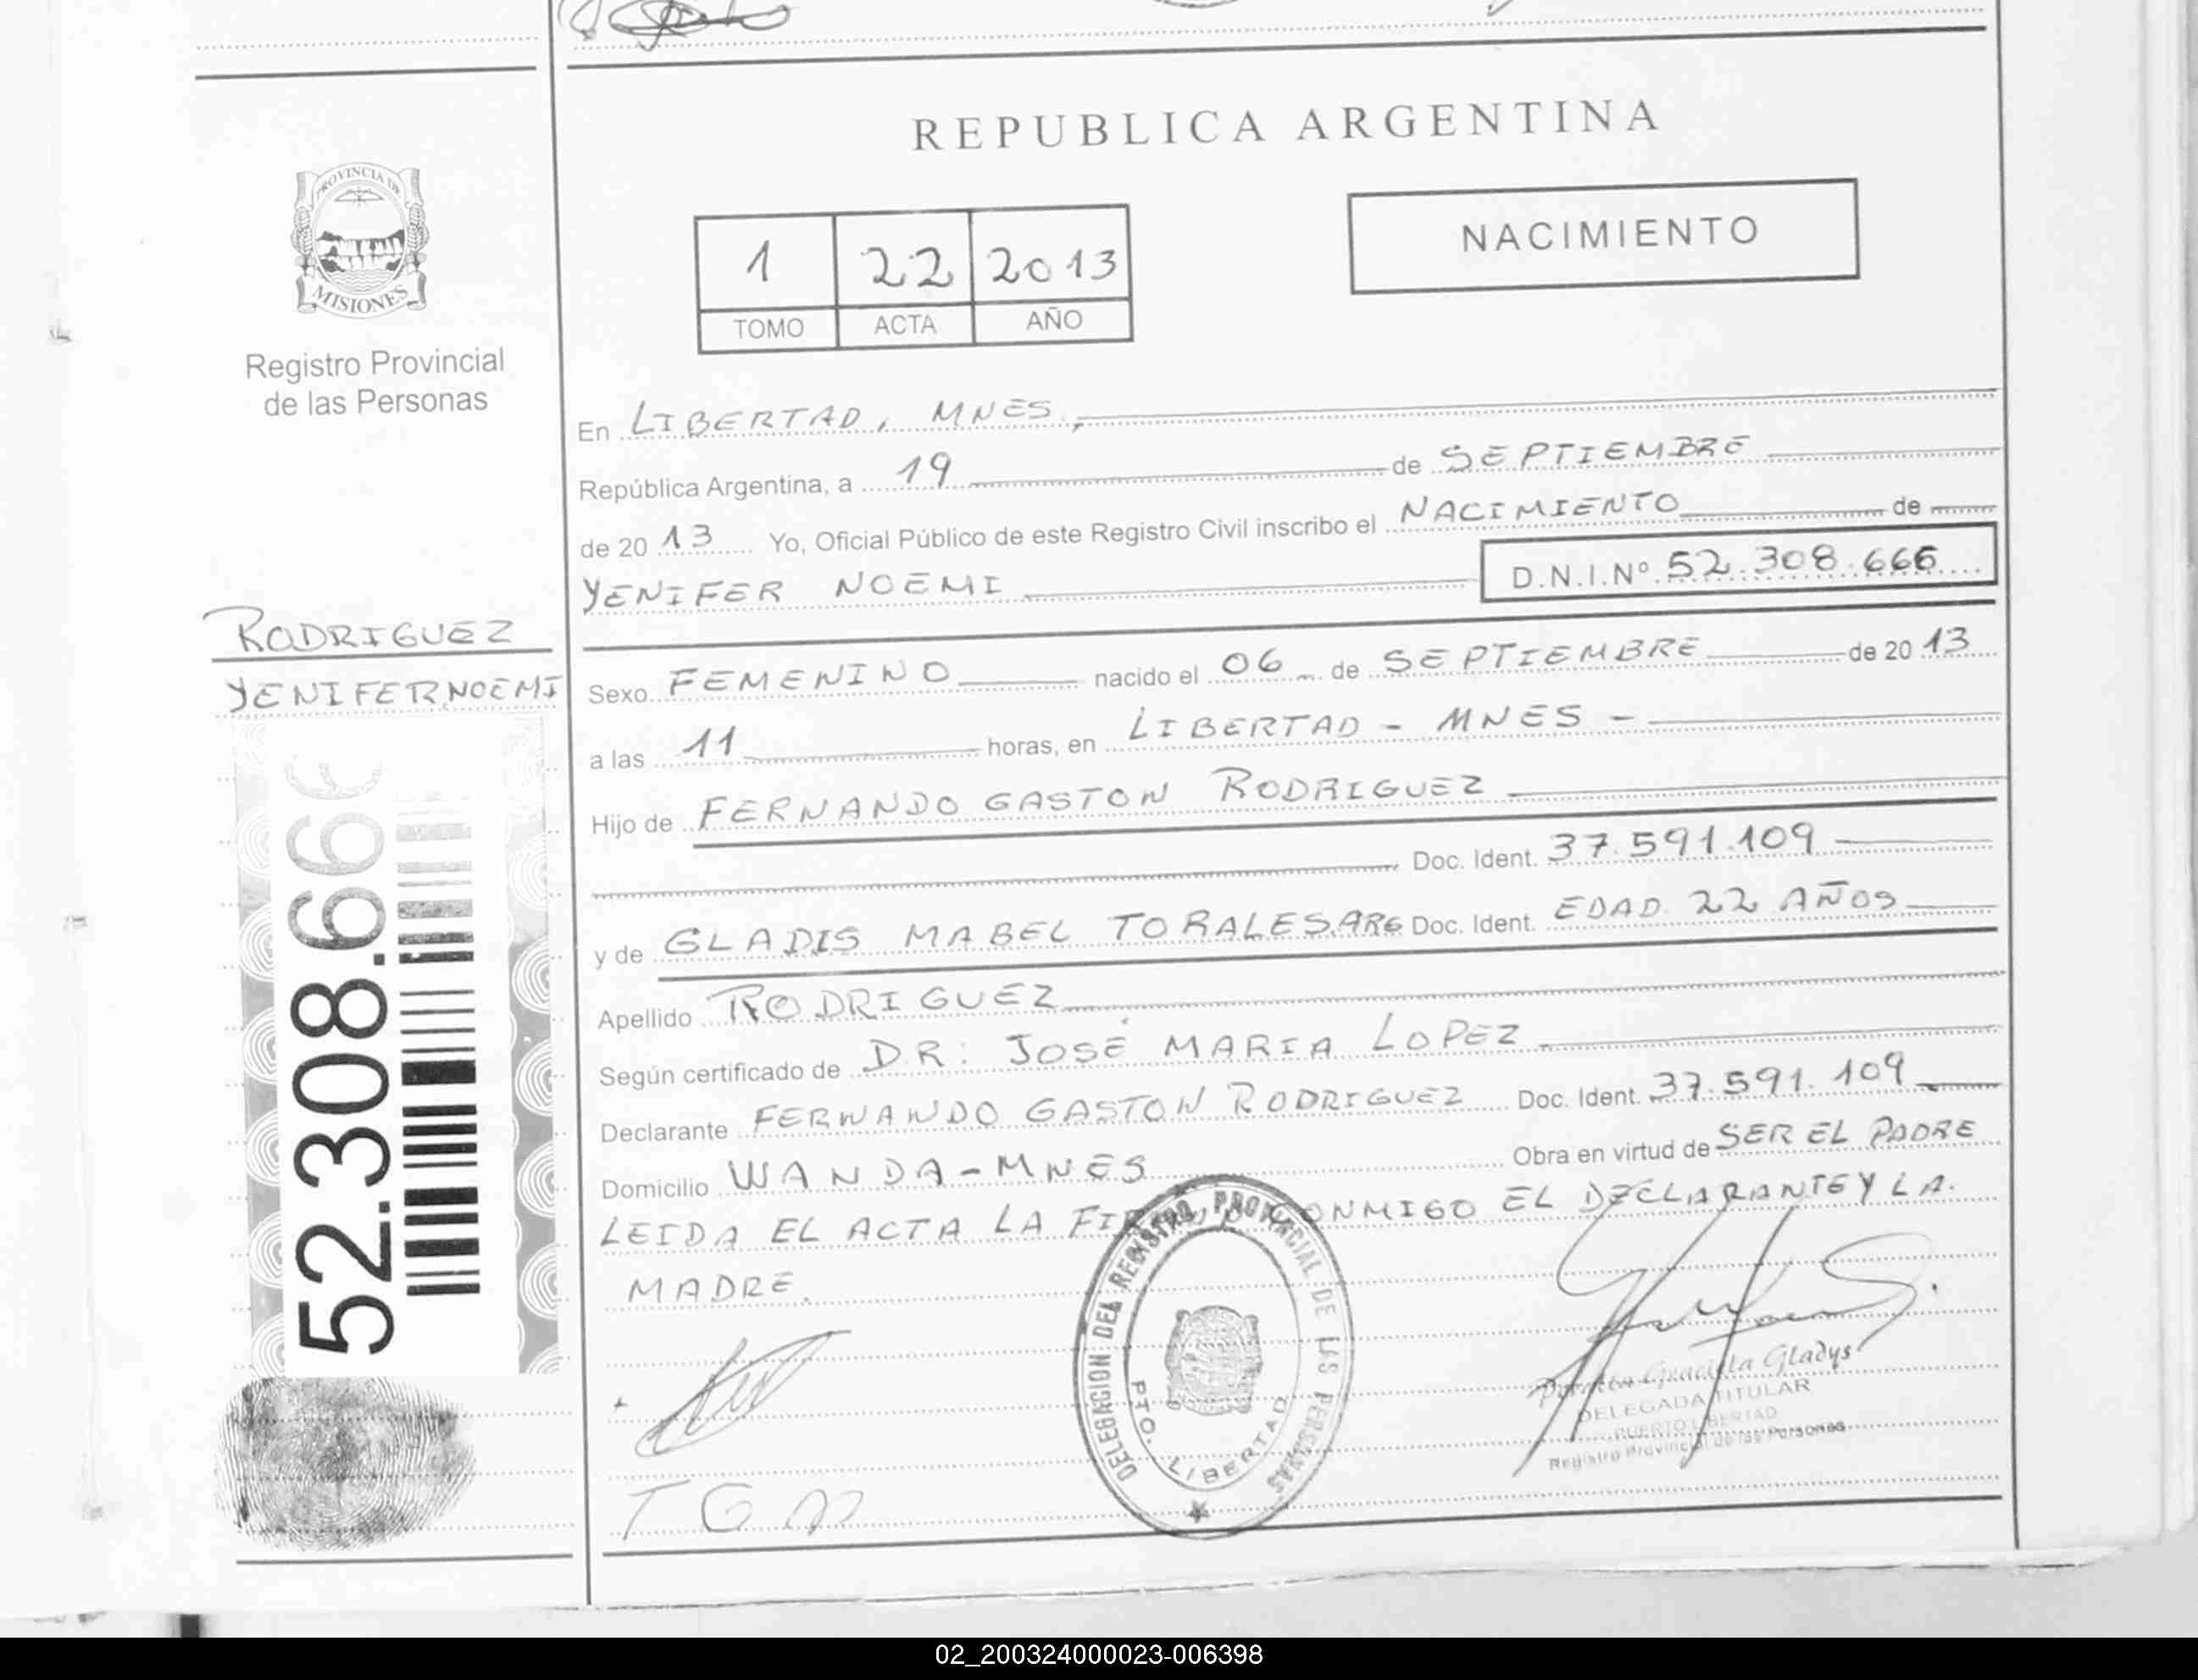 REPUBLICA ARGENTINA
PROVINCIA DE
MISIONES
Registro Provincial
de las Personas
NACIMIENTO
1 22 2013
TOMO ACTA AÑO
En LIBERTAD, MNES.
República Argentina, a 19 de SEPTIEMBRE
de 20 13 Yo, Oficial Público de este Registro Civil inscribo el NACIMIENTO de
YENIFER NOEMI D.N.I.Nº 52.308.666
RODRIGUEZ
YENIFER NOEMI
52.308.666
Sexo FEMENINO nacido el 06 de SEPTIEMBRE de 20 13
a las 11 horas, en LIBERTAD - MNES -
Hijo de FERNANDO GASTON RODRIGUEZ
Doc. Ident. 37.591.109
y de GLADIS MABEL TORALES.ARG Doc. Ident. EDAD 22 AÑOS
Apellido RODRIGUEZ
Según certificado de DR: JOSÉ MARIA LOPEZ
Declarante FERNANDO GASTON RODRIGUEZ Doc. Ident. 37.591.109
Domicilio WANDA-MNES Obra en virtud de SER EL PADRE
LEIDA EL ACTA LA EL DECLARANTE Y LA
MADRE.
DELEGACION DEL REGISTRO PROVINCIAL DE LAS PERSONAS
PTO. LIBERTAD
Graciela Gladys
DELEGADA TITULAR
PUERTO LIBERTAD
Registro Provincial de las Personas
02_200324000023-006398